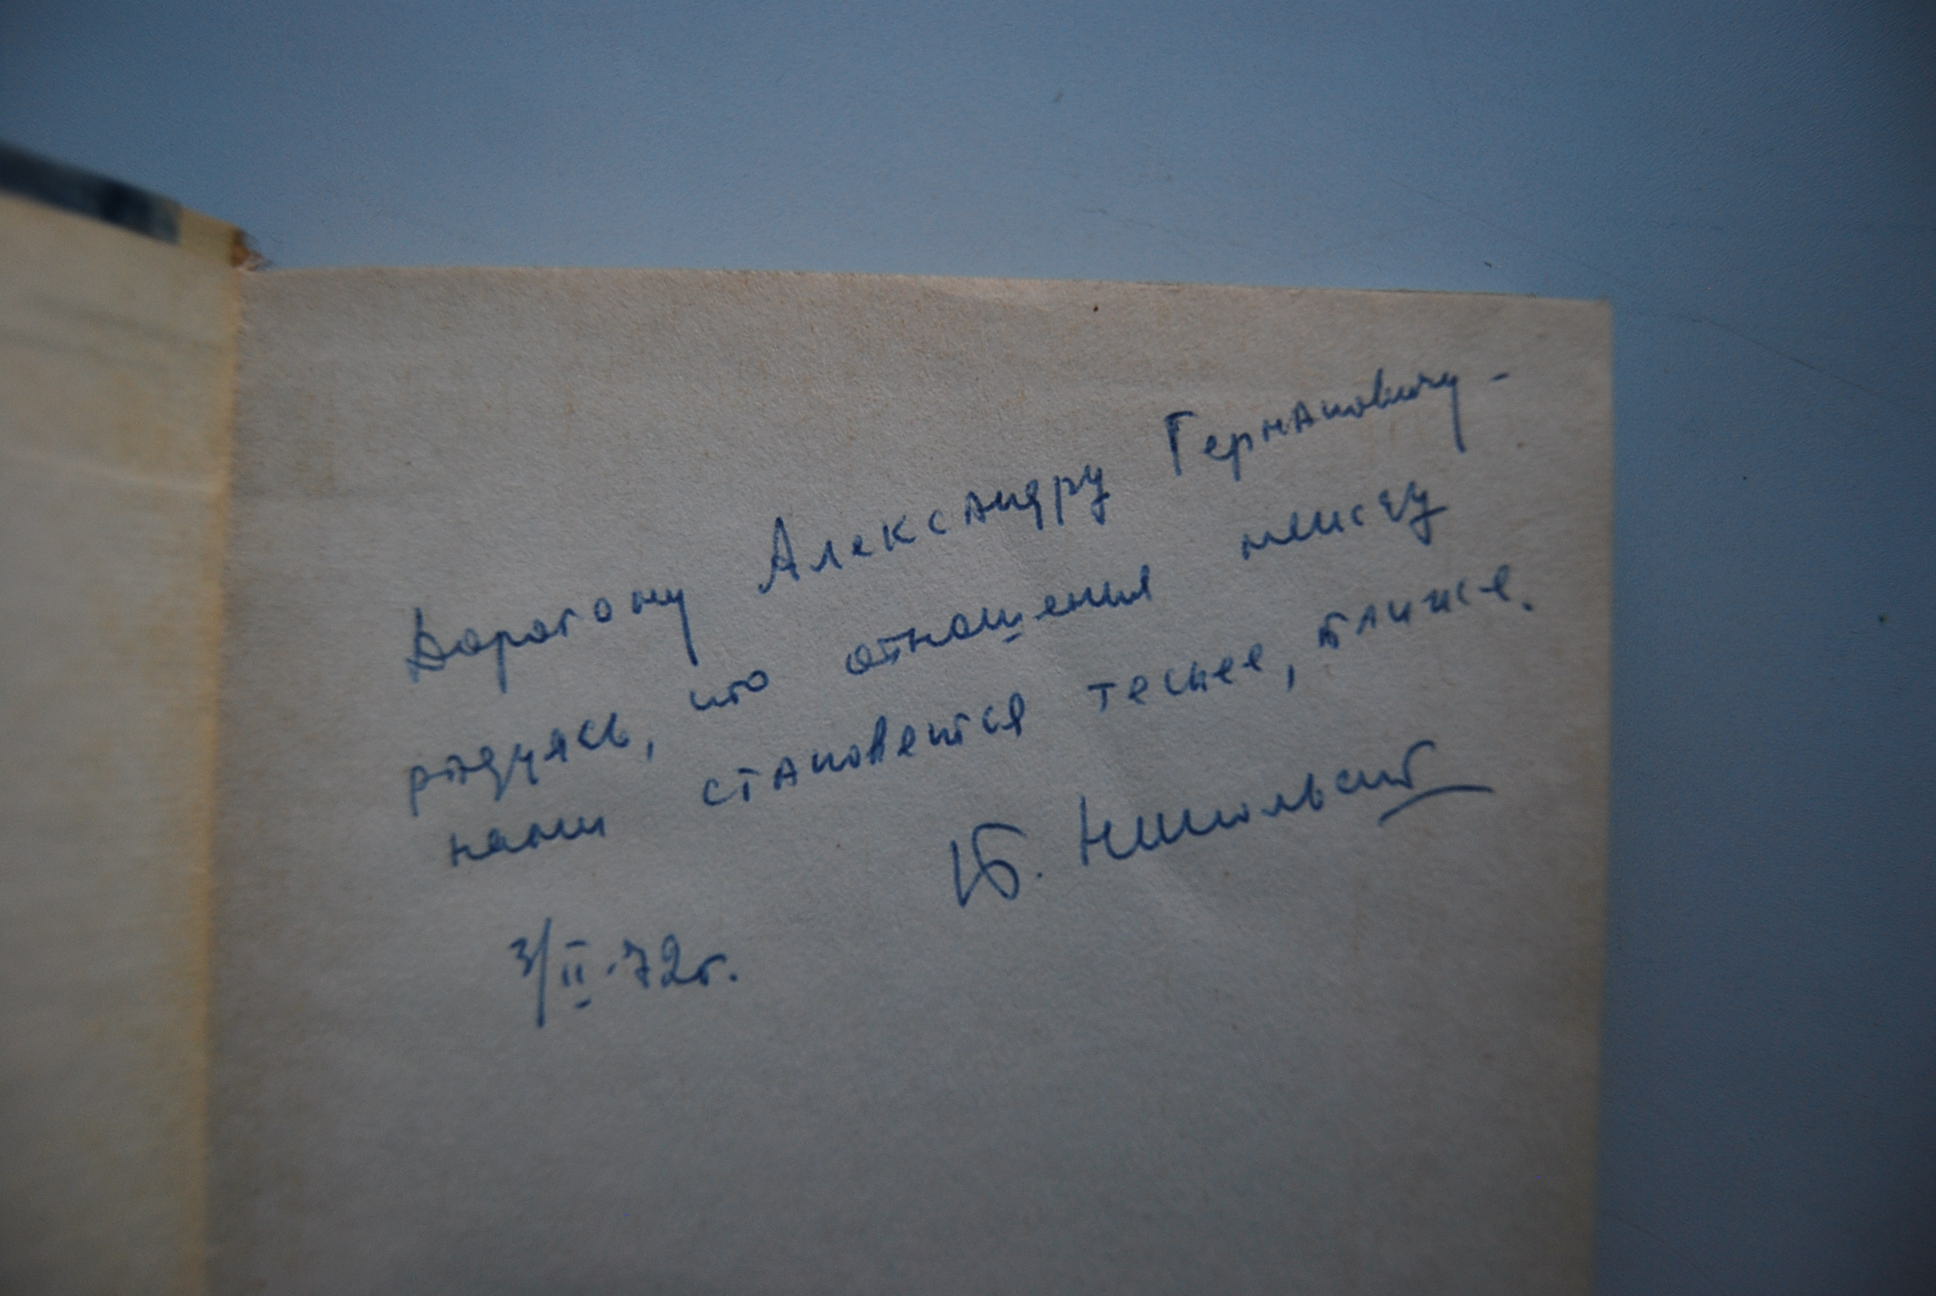 Дорогому Александру Германовичу -
радуясь, что отношения между
нами становятся теснее, ближе.
Б. Никольский
3/II.72г.